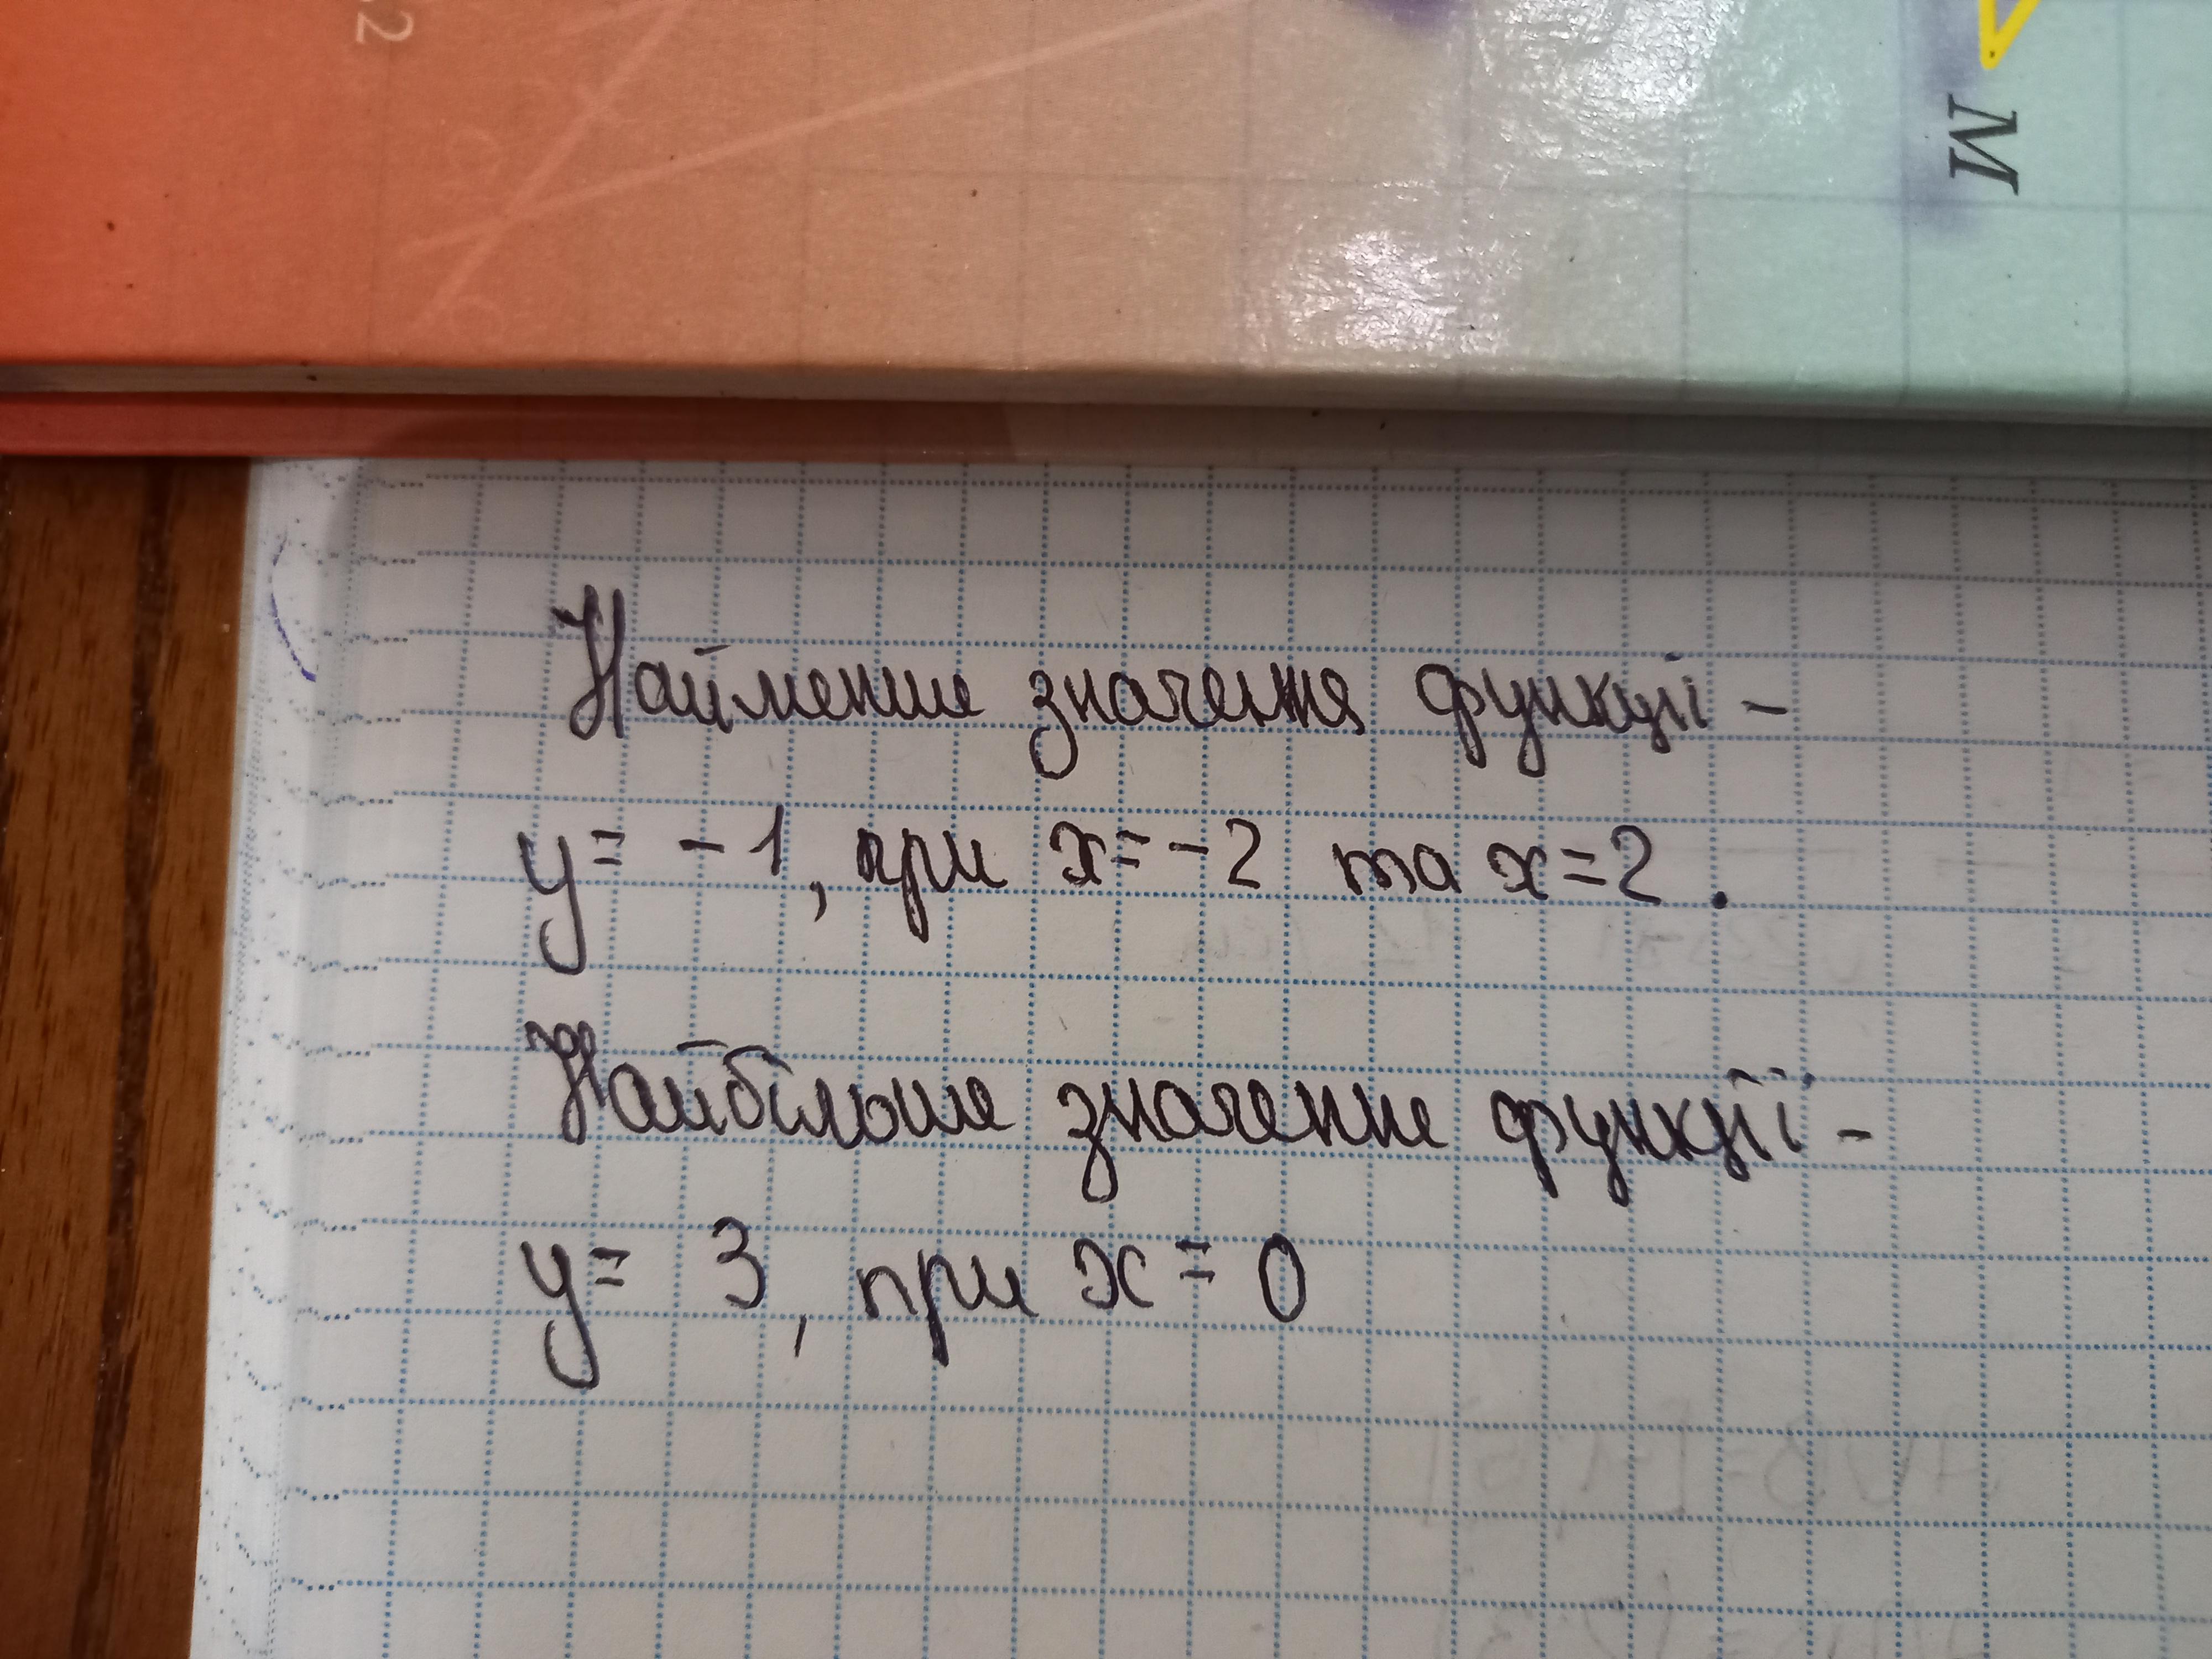 M
Найменше значення функції –
y = – 1, при x = – 2 та x = 2 .
Найбільше значення функції –
y = 3 , при x = 0